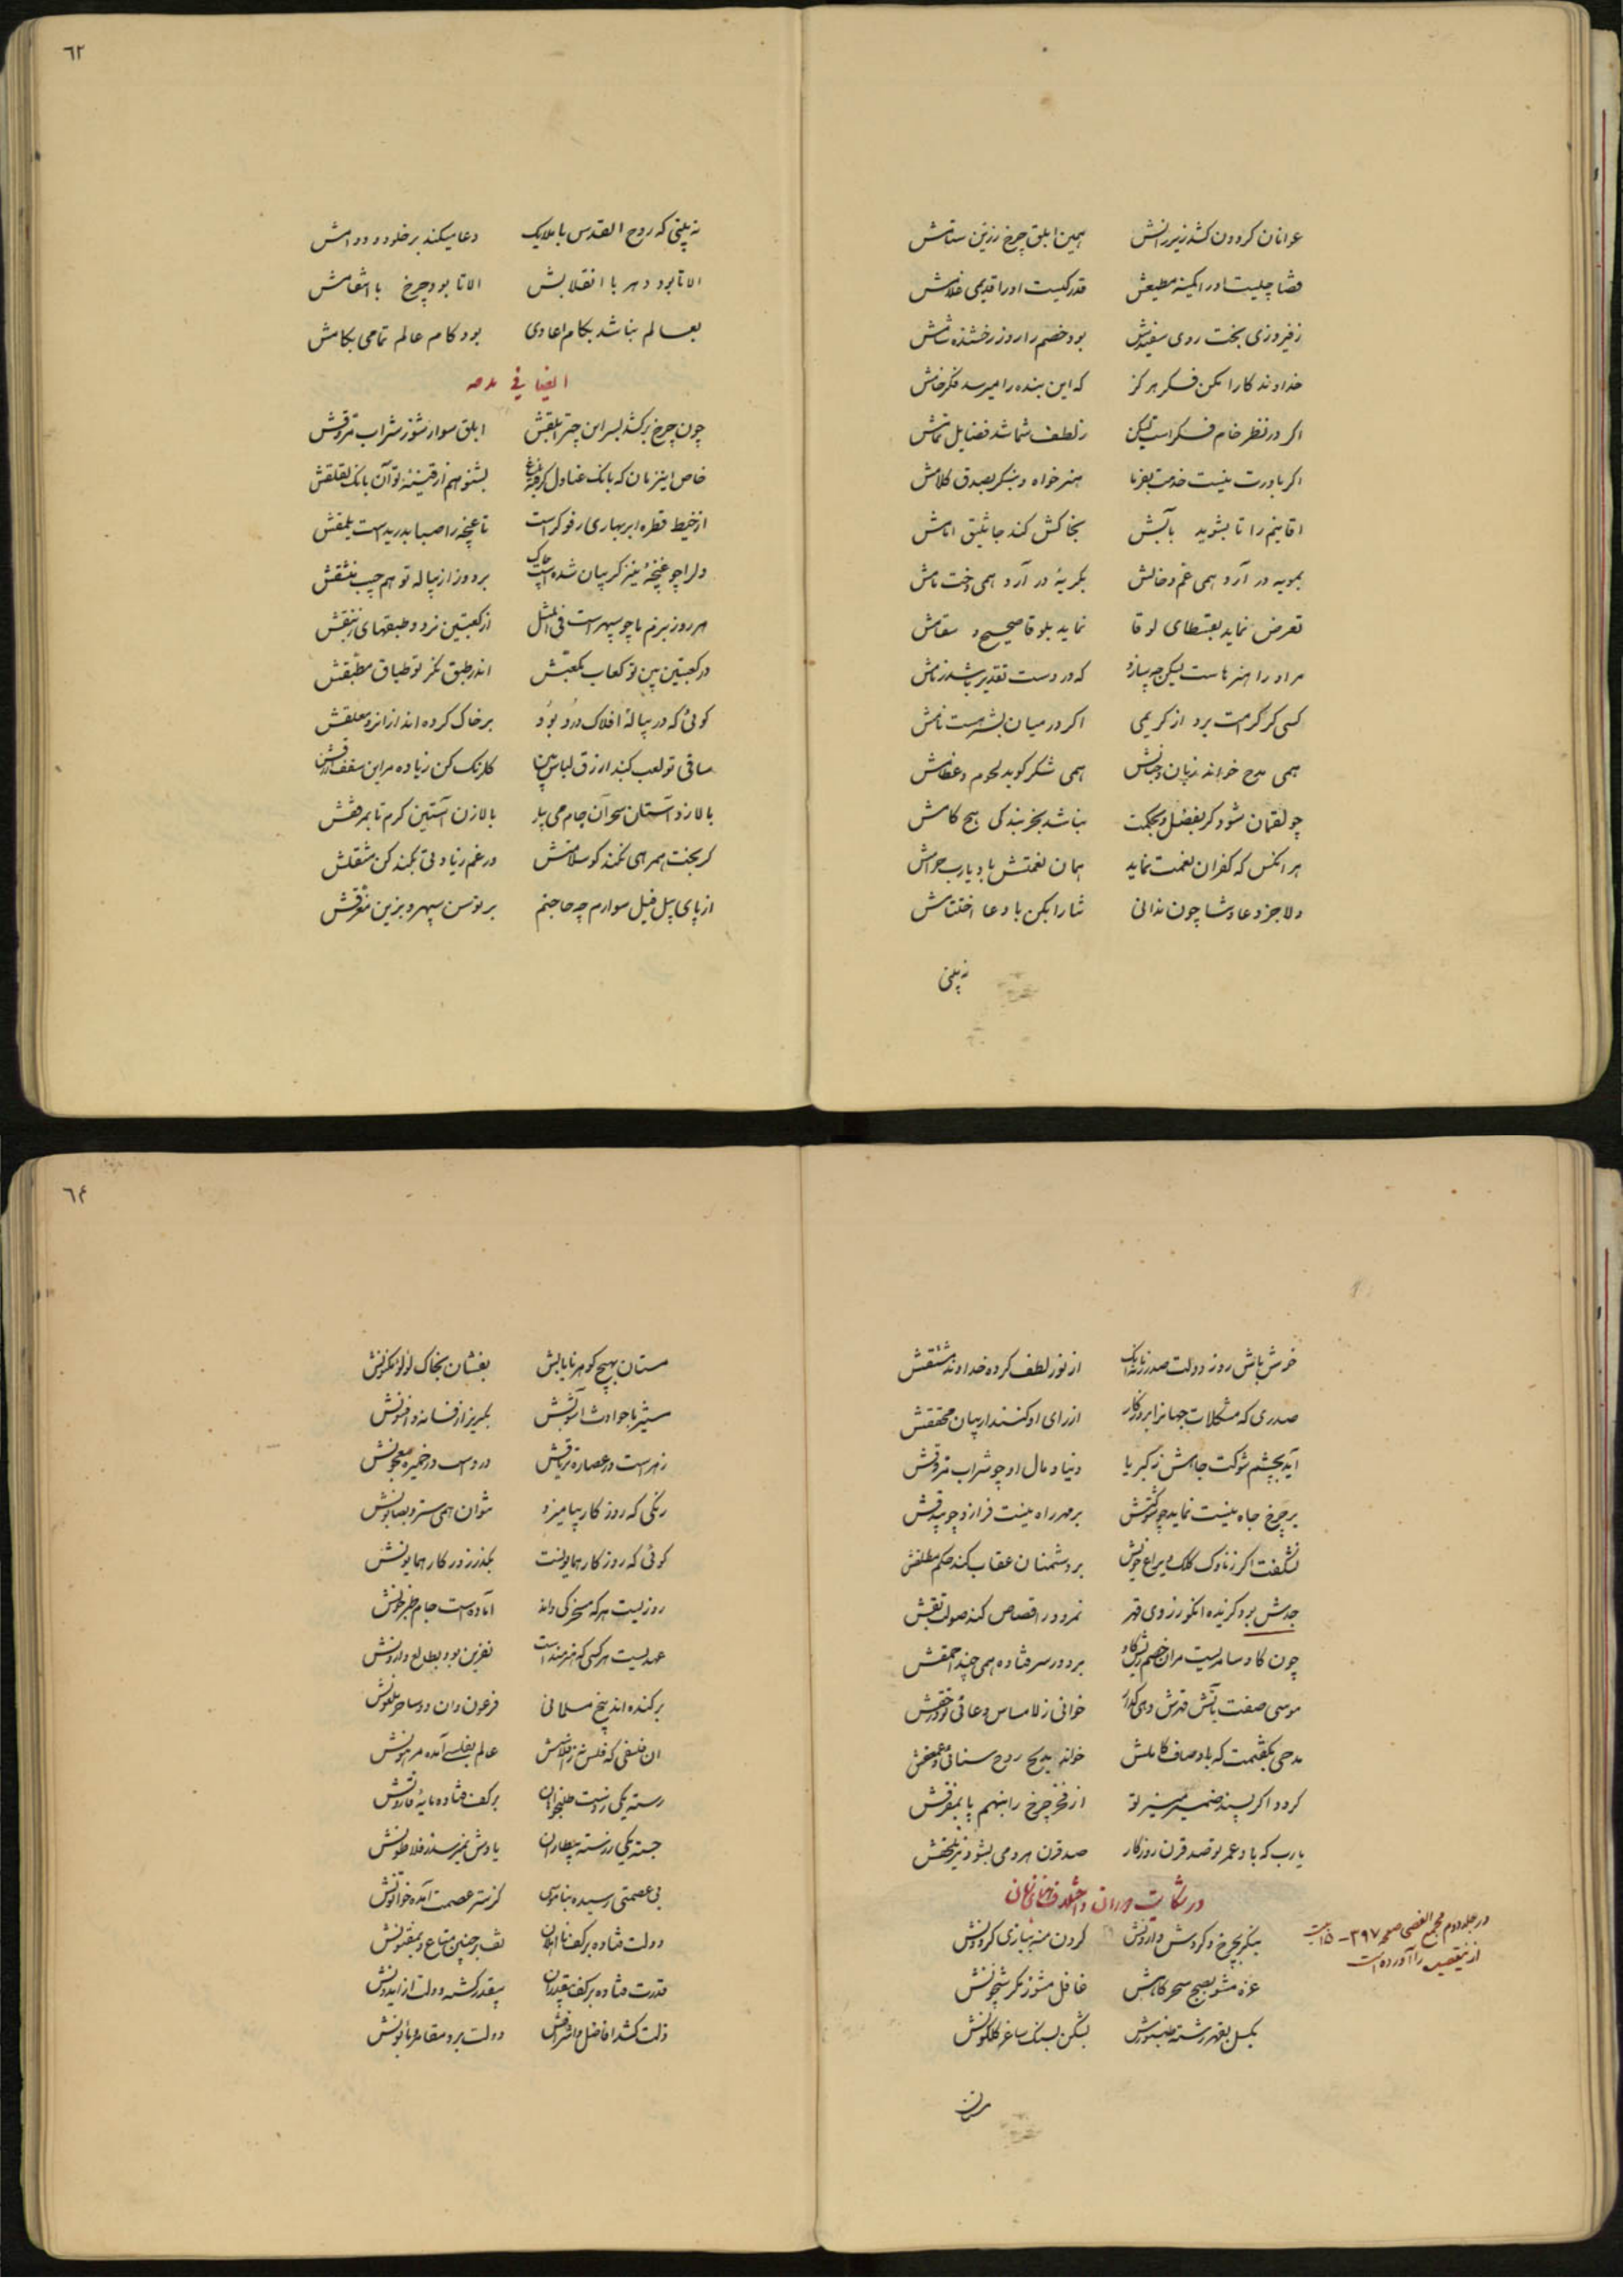 عوانان کردون کشد زیر رانش همین ابلق چرخ زرین ستامش
قضا چیست اور اکمینه مطیعش قدر کیست اورا قدیمی غلامش
ز فیروزی بخت روی سفیدش بود خصم را روز رخشنده شامش
خداوند کارا مکن فکر هرکز که این بنده را میرسد فکر خامش
اکر در نظر خام فکر است لیکن ز لطف شما شد فضایل تمامش
اکر باورت نیست خدمت بفرما هنر خواه و بنکر بصدق کلامش
اقانیم را تا بشوید بآبش بخاکش کند جاثلیق امامش
بمویه در آرد همی عم و خالش بکریه در آرد همی دخت مامش
تعرض نماید بقسطای لوقا نماید بلوقا صحیح و سقامش
مراد را هنرهاست لیکن چه سازد که در دست تقدیر باشد زمامش
کسی کز کرامت برد از کریمی اکر در میان بشر هست نامش
همی مدح خواند زبان و جنانش همی شکر کوید لحوم و عظامش
چو لقمان شود کر بفضل و بحکمت نباشد بجز بندکی هیچ کامش
هر انکس که کفران نعمت نماید همان نعمتش باد یارب حرامش
دلا جز دعا و ثنا چون ندانی ثنا را بکن با دعا اختتامش
نه بینی
٦٢
نه بینی که روح القدس با ملایک دعا میکند بر خلود و دوامش
الا تا بود دهر با انقلابش الا تا بود چرخ با انتقامش
بعالم نباشد بکام اعادی بود کام عالم تمامی بکامش
ایضا فی مدحه
چون چرخ برکشد بسر این چتر ابلقش ابلق سوار شو ز شراب مروقش
خاص اینزمان که بانک عنادل کرفته باغ بشنو هم از قنینه تو آن بانک لقلقش
از خیط قطره ابر بهاری رفوکر است تا غنچه را صبا بدریده است یلمقش
دلرا چو غنچه نیز کریبان شده است چاک بر دوز از پیاله تو هم جیب منشقش
هر روز بزم ما چو سپهر است فی المثل از کعبتین نرد و طبقهای زنبقش
در کعبتین بین تو کعاب مکعبش اندر طبق نکر تو طباق مطبقش
کوئی که در پیالهٔ افلاک درد بود بر خاک کرده اند از انرو معلقش
ساقی تو لعب کنبد ازرق لباس بین کلرنک کن ز باده مر این سقف ازرقش
بالا زد آستان سحر آن جام می بیار بالا زن آستین کرم تا بمرفقش
کر بخت همرهی نکند کو سلامتش ور غم زیادتی بکند کن مشقلش
از پای پیل فیل سوارم چه حاجتم بر توسن سپهر و بزین مغرقش
خوش باش روز دولت صدر زمانه انک از نور لطف کرده خداوند مشتقش
صدری که مشکلات جهانرا بروزکار از رای او کنند ار بیان محققش
آید بچشم شوکت جاهش ز کبریا دنیا و مال او چو شراب مروقش
بر چرخ جاه نیست نماید چو کوکبش بر مهر راه نیست فرازد چو بیدقش
نشکفت اکر ز ناوک کلک و یراع خویش بر دشمنان عقاب کند حکم مطلقش
جدش برد کزیده انکو ز روی قهر نمرود را قصاص کند صولت بقش
چون کاو سامریست مر ان خصم ریش کاو بر دور سر فتاده همی چند احمقش
موسی صفت بآتش قهرش دهی کداز خوانی ز لامساس دعائی تو در حقش
مدحی بکفتمت که باوصاف کاملش خواند مدیح روح سنائی و عمعقش
کردد اکر پسند ضمیر منیر تو از فخر چرخ را بنهم پا بمفرقش
یارب که باد عمر تو صد قرن روزکار صد قرن هر دمی بشود نیز ملحقش
در شکایت دوران و اختلاف ابنای زمان
بنکر بچرخ و کردش وارونش کردن منه ببازی کردونش
غره مشو بصبح سحرکاهش غافل مشو ز مکر شبیخونش
بکسل بقهر رشته طنبورش بشکن بسنک ساغر کلکونش
در جلد دوم مجمع الفصحا صفحه ٣٩٧ - ١٥ بیت
از این قصیده را آورده است
مستان
٦٤
مستان بهیچ کوهر نایابش بفشان بخاک لؤلؤ مکنونش
ستیز با حوادث آشوبش بکریز از فسانه و افسونش
زهر است در عصاره تریاقش درد است در خمیره معجونش
رنکی که روزکار بیامیزد نتوان همی سترد بصابونش
کوئی که روزکار همایونست بکذر ز روزکار همایونش
روزیست هر که مسخرکی داند آماده است جام طبرخونش
عهدیست هر کسی که هنرمند است نفرین بود بطالع وارونش
برکنده اند بیخ مسلمانی فرعون وان دو ساحر ملعونش
ان مفلسی که فلس نه ز افلاسش عالم بفلسی آمده مرهونش
رسته یکی ز پست طبخواران بر کف فتاده مایهٔ قارونش
جسته یکی ز دسته بیطاران یادش نمیرسد ز فلاطونش
بی عصمتی رسیده بناموس کز ستر عصمت آمده خاتونش
دولت فتاده بر کف نااهلان تف بر چنین متاع و بمفتونش
قدرت فتاده بر کف بیقدران بیقدر کشته دولت از ایدونش
ذلت کشد افاضل و اشرافش دولت برد مقامر و مأبونش